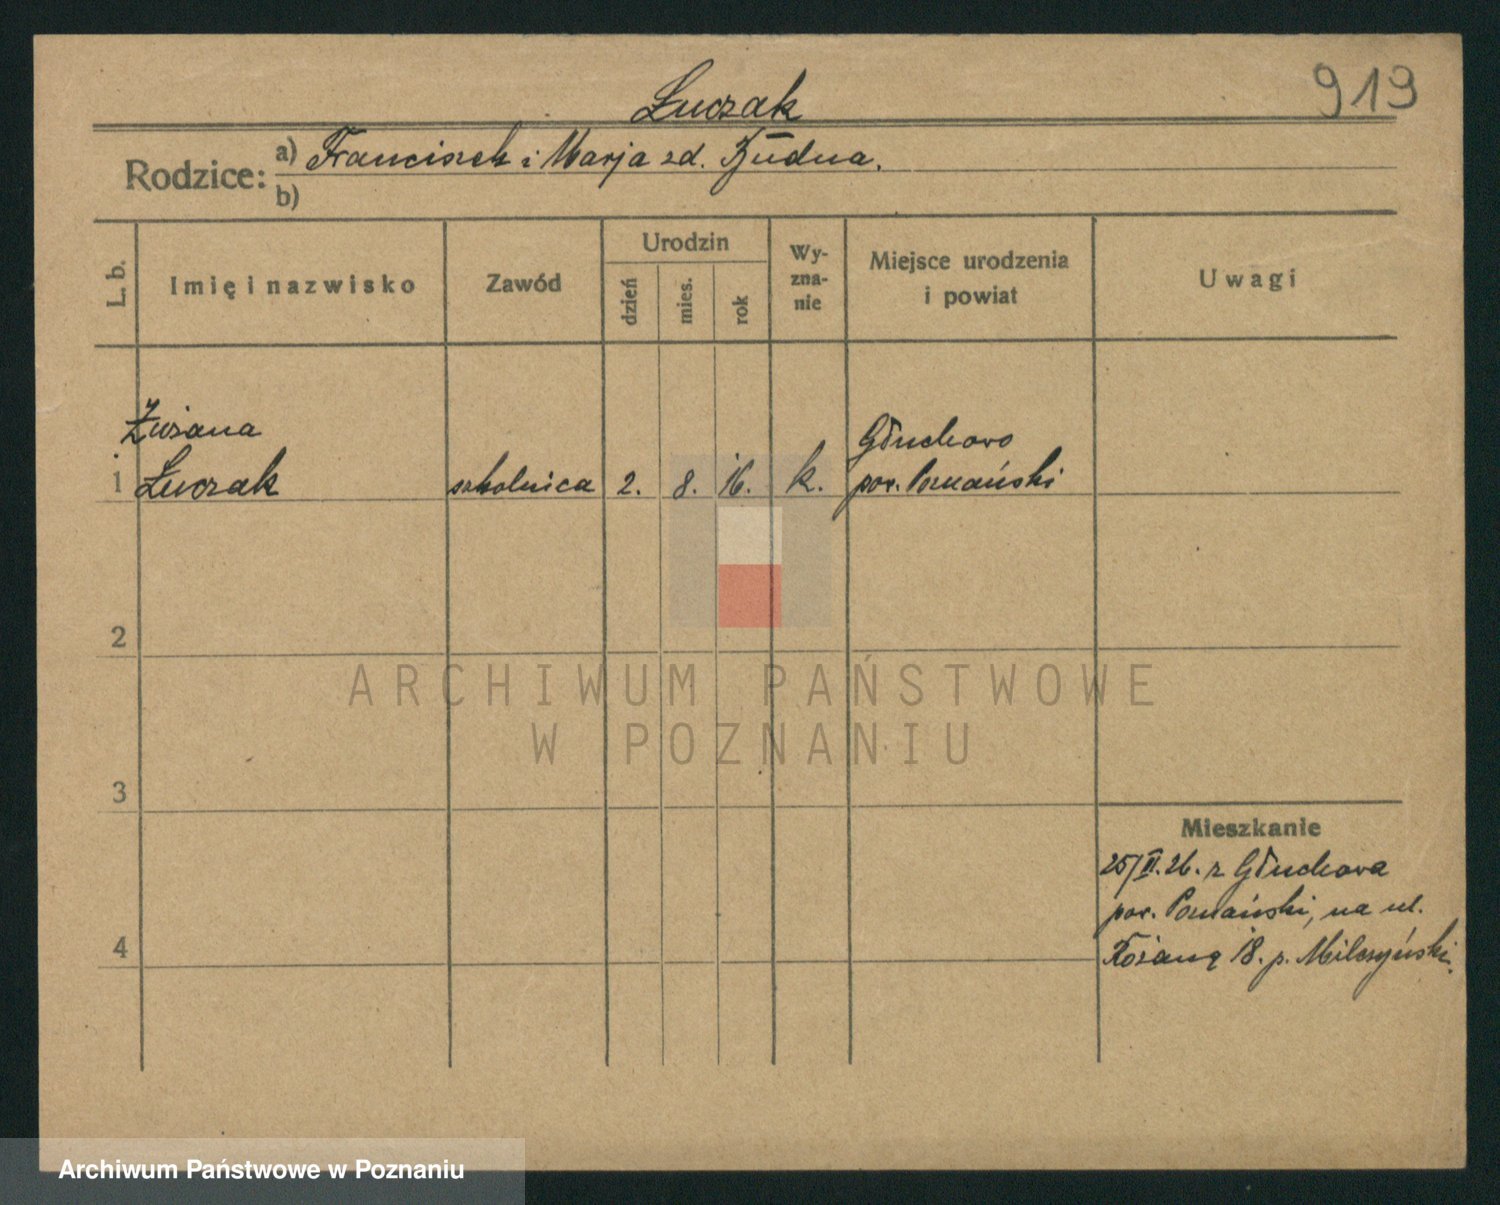 Łuczak
919
Rodzice: a) Franciszek i Marja zd.
b)
L. b.
Imię i nazwisko
Zawód
Urodzin
dzień
mies.
rok
Wy-
zna-
nie
Miejsce urodzenia
i powiat
Uwagi
1
Łuczak
szkolnica
2.
8.
16.
k.
Głuchowo
pow. Poznański
2
3
4
Mieszkanie
25/II.26. z Głuchowa
pow. Poznański, na ul.
Różaną 18. p. Milczyński.
ARCHIWUM PAŃSTWOWE
W POZNANIU
Archiwum Państwowe w Poznaniu